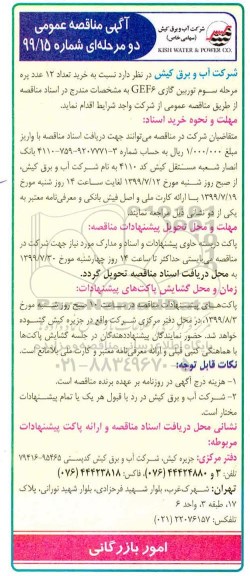 شرکت آب و برق کیش
(سهامی خاص)
KISH WATER & POWER CO.
آگهی مناقصه عمومی
دو مرحله‌ای شماره ۹۹/۱۵
شرکت آب و برق کیش در نظر دارد نسبت به خرید تعداد ۱۲ عدد پره
مرحله سوم توربین گازی GEF6 به مشخصات مندرج در اسناد مناقصه
از طریق مناقصه عمومی از شرکت واجد شرایط اقدام نماید.
مهلت و نحوه خرید اسناد:
متقاضیان شرکت در مناقصه می‌توانند جهت دریافت اسناد مناقصه با واریز
مبلغ ۱/۰۰۰/۰۰۰ ریال به حساب شماره ۳-۹۲۰۷۷۷۱-۷۵۹-۴۱۱۰ بانک
انصار شعبه مستقل کیش کد ۴۱۱۰ به نام شرکت آب و برق کیش،
از صبح روز شنبه مورخ ۱۳۹۹/۷/۱۲ لغایت ساعت ۱۴ روز شنبه مورخ
۱۳۹۹/۷/۱۹ با ارائه کارت ملی و اصل فیش بانکی و معرفی‌نامه معتبر به
یکی از دو نشانی ذیل مراجعه نمایند.
مهلت و محل تحویل پیشنهادات مناقصه:
پاکت دربسته حاوی پیشنهادات و اسناد و مدارک مورد نیاز جهت شرکت در
مناقصه می‌بایستی حداکثر تا ساعت ۱۴ روز چهارشنبه مورخ ۱۳۹۹/۷/۳۰
به محل دریافت اسناد مناقصه تحویل گردد.
زمان و محل گشایش پاکت‌های پیشنهادات:
پاکت‌های پیشنهادات مناقصه در ساعت ۱۰ صبح روز شنبه مورخ
۱۳۹۹/۸/۳، در محل دفتر مرکزی شرکت واقع در جزیره کیش گشوده
خواهد شد. حضور نمایندگان پیشنهاددهندگان در جلسه گشایش پاکت‌ها
با هماهنگی کتبی قبلی و ارائه معرفی‌نامه معتبر و کارت ملی بلامانع است.
نکات قابل توجه:
۰۲۱-۸۸۳۴۹۶۷۰
۱- هزینه درج آگهی در روزنامه بر عهده برنده مناقصه است.
۲- شرکت آب و برق کیش در رد یا قبول هر یک یا تمام پیشنهادات
مختار است.
نشانی محل دریافت اسناد مناقصه و ارائه پاکت پیشنهادات
مربوطه:
دفتر مرکزی: جزیره کیش، شرکت آب و برق کیش کدپستی ۹۵۴۶۵-۷۹۴۱۶
تلفن: ۳ و ۴۴۴۲۴۸۸۰ (۰۷۶)، فاکس: ۴۴۴۲۳۸۱۸ (۰۷۶)
تهران: شهرک‌غرب، بلوار شهید فرحزادی، بلوار شهید نورانی، پلاک
۱۷، طبقه ۳، واحد ۶
تلفکس: ۲۲۰۷۶۱۵۷ (۰۲۱)
امور بازرگانی